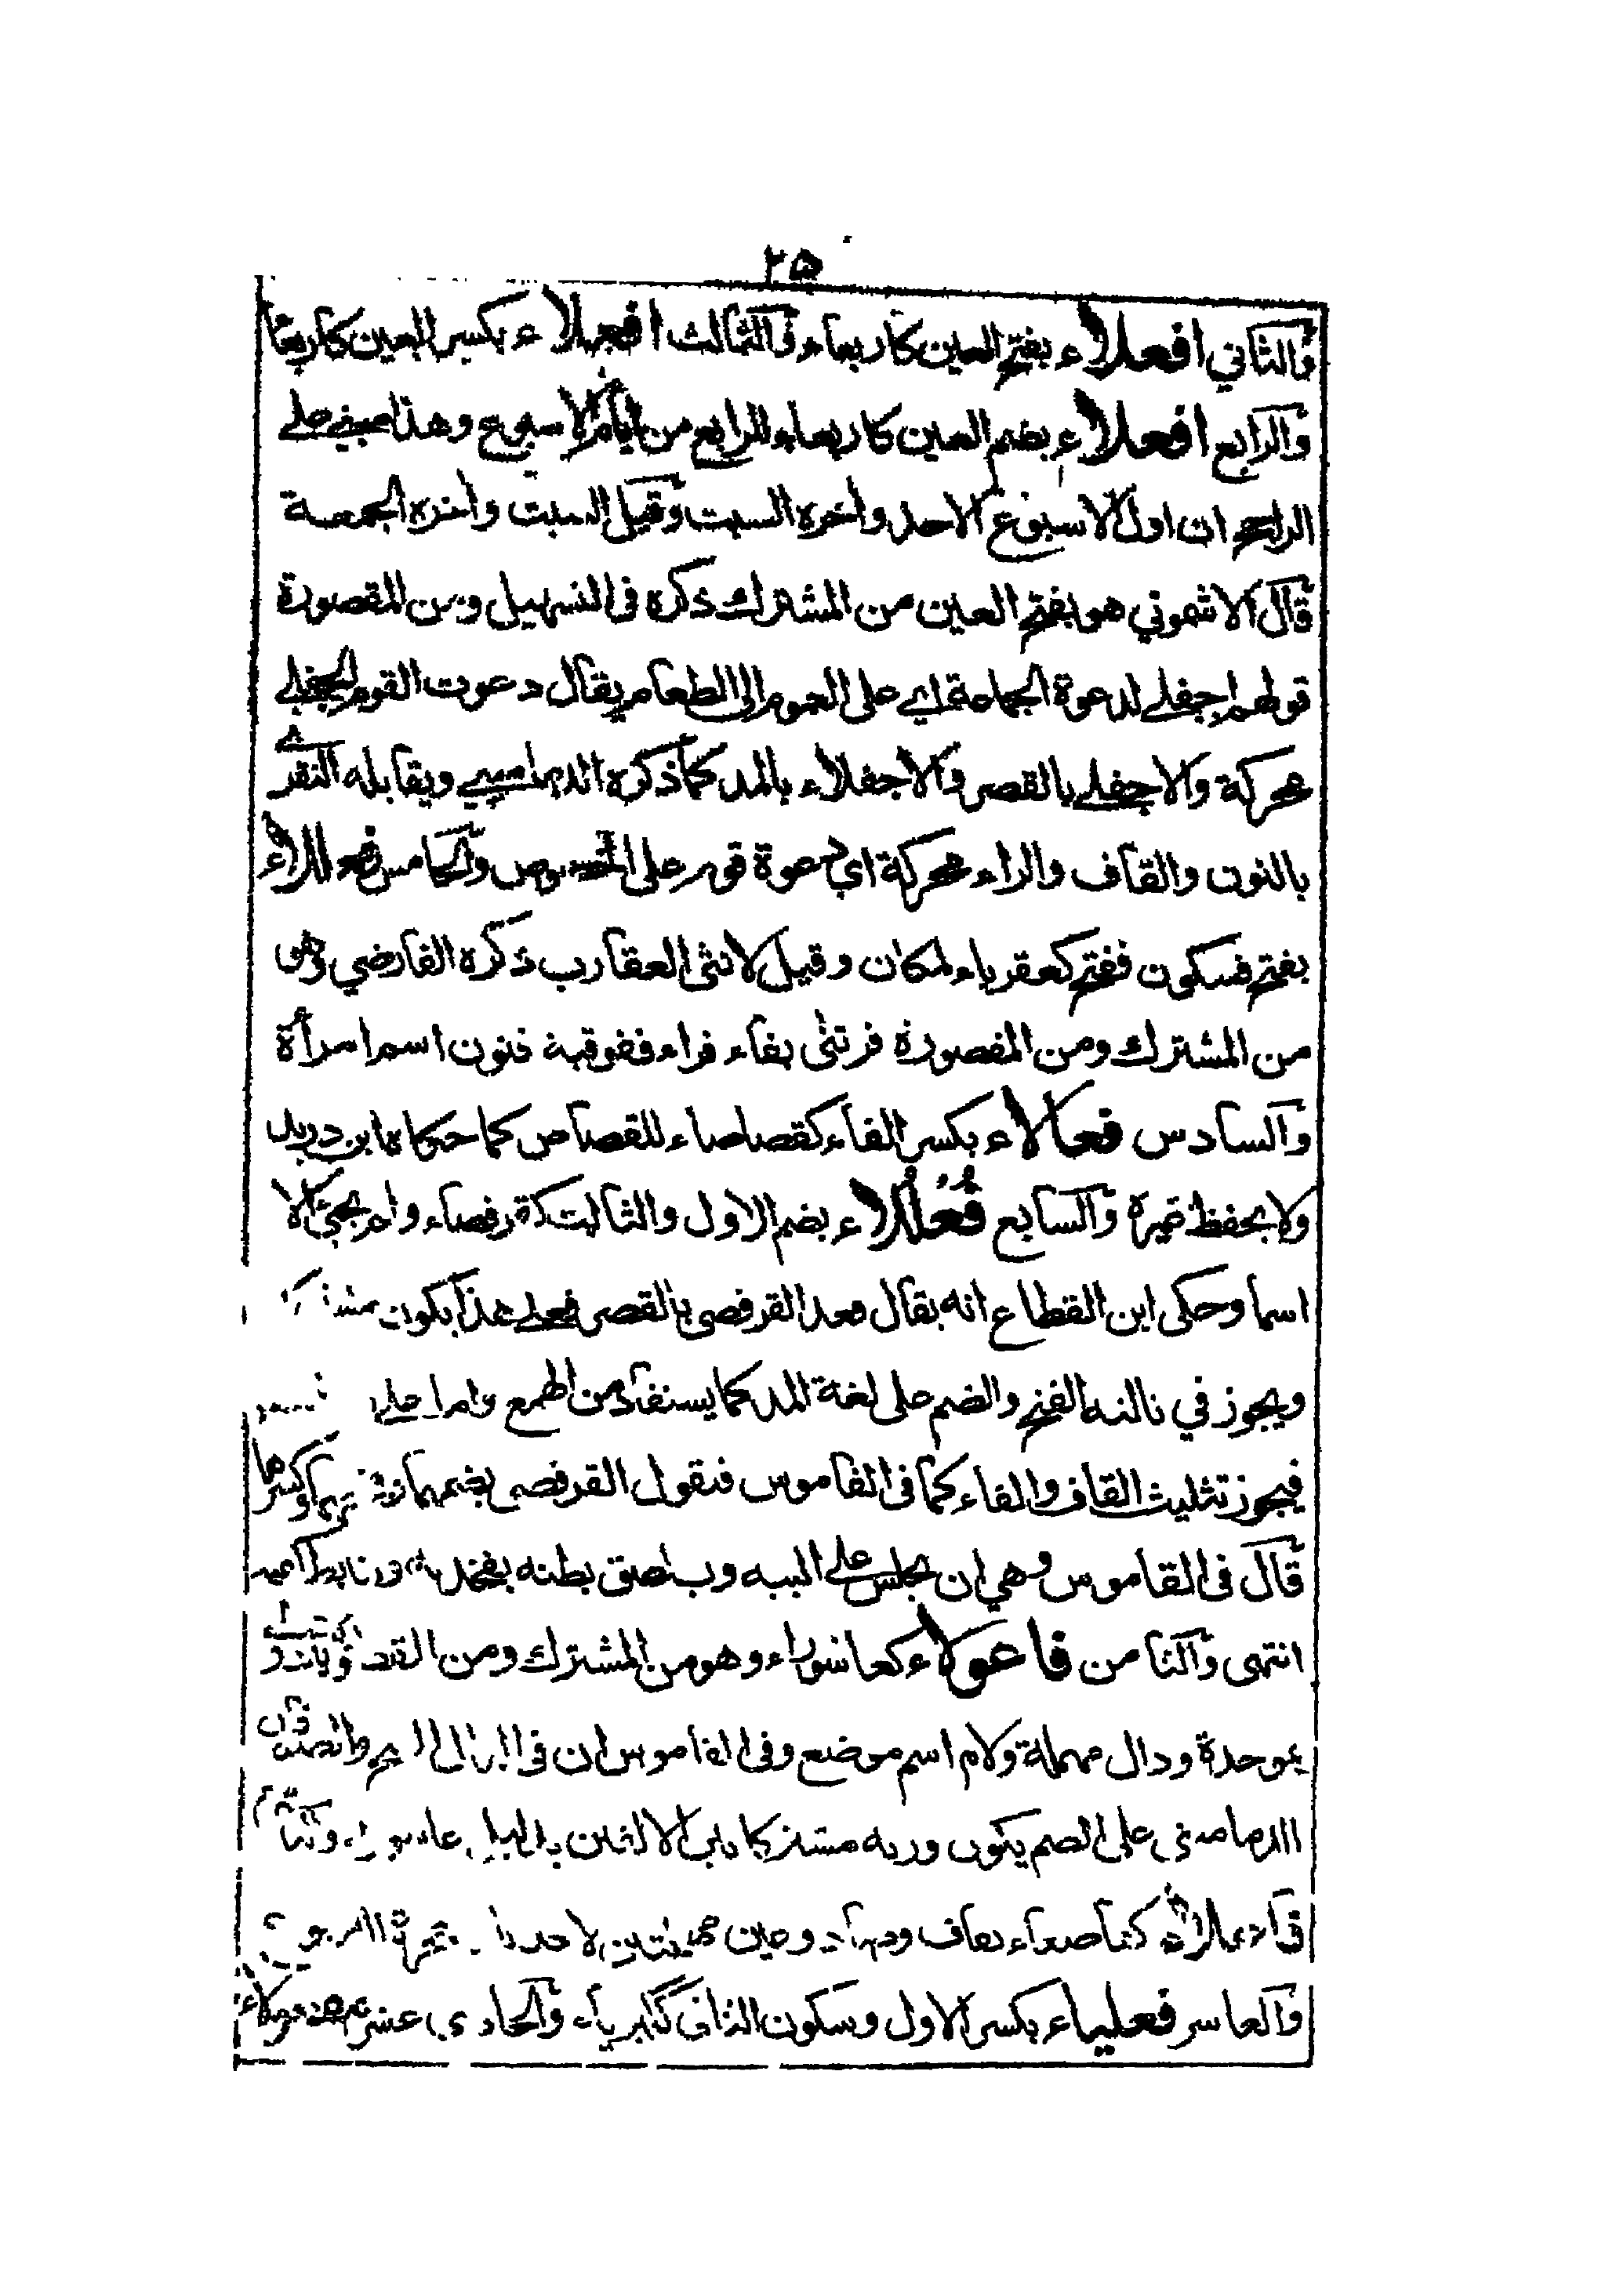 ٢٥
والثاني افعلاء بفتح العين كاربعاء والثالث افعلاء بكسر العين كاربعا
والرابع افعلاء بضم العين كاربعاء للرابع من ايام الاسبوع وهذا مبني على
الراجح ان اول الاسبوع الاحد وآخره السبت وقيل السبت وآخره الجمعة
قال الاشموني هو بفتح العين من المشترك ذكره في التسهيل ومن المقصورة
قولهم اجفلى لدعوة الجماعة اي على العموم الى الطعام يقال دعوت القوم الجفلى
محركة والاجفلى بالقصر والاجفلاء بالمد كما ذكره الدماميني ويقابله النقرى
بالنون والقاف والراء محركة اي دعوة قوم على الخصوص والخامس فعللاء
بفتح فسكون ففتح كعقرباء لمكان وقيل لانثى العقارب ذكره الفارضي وهو
من المشترك ومن المقصورة فرتنى بفاء فراء ففوقية فنون اسم امرأة
والسادس فعالاء بكسر الفاء كقصاصاء للقصاص كما حكاه ابن دريد
ولا يحفظ غيره والسابع فُعْلُلاء بضم الاول والثالث كقرفصاء ولم يجئ الا
اسما وحكى ابن القطاع انه يقال قعد القرفصى بالقصر فعلى هذا يكون مشتركا
ويجوز في ثالثه الفتح والضم على لغة المد كما يستفاد من الهمع واما على
فيجوز تثليث القاف والفاء كما في القاموس فتقول القرفصى بضمهما وكسرهما
قال في القاموس وهي ان يجلس على اليتيه ويلصق بطنه بفخذيه
انتهى والثامن فاعولاء كعاشوراء وهو من المشترك ومن
بموحدة ودال مهملة ولام اسم موضع وفي القاموس ان في
الدماميني على الضم يكون وزنه مشتركا بين الالفين
كقاصعاء بقاف وصاد وعين مهملتين لاحد
والعاشر فعلياء بكسر الاول وسكون الثاني ككبرياء والحادي عشر